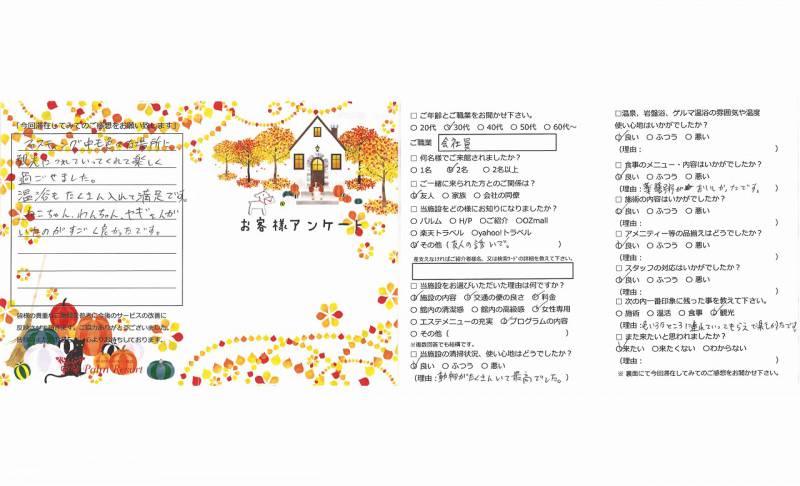 「今回滞在してみてのご感想をお願い致します」
観光につれていってくれて楽しく
過ごせました。
温浴もたくさん入れて満足です。
ねこちゃん、わんちゃん、ヤギさんが
いたのがすごく良かったです。
皆様の貴重なご意見を参考に今後のサービスの改善に
反映させて頂きます。ご協力ありがとうございました。
心よりお待ちしております。
Palm Resort
お客様アンケート
□ ご年齢とご職業をお聞かせ下さい。
○ 20代 ○ 30代 ○ 40代 ○ 50代 ○ 60代～
ご職業 会社員
□ 何名様でご来館されましたか？
○ 1名 ○ 2名 ○ 2名以上
□ ご一緒に来られた方とのご関係は？
○ 友人 ○ 家族 ○ 会社の同僚
□ 当施設をどの様にお知りになりましたか？
○ パルム ○ H/P ○ ご紹介 ○ OZmall
○ 楽天トラベル ○ yahoo!トラベル
○ その他（友人の誘いで。）
差支えなければご紹介者様名、又は検索ワードの詳細を教えて下さい。
□ 当施設をお選びいただいた理由は何ですか？
○ 施設の内容 ○ 交通の便の良さ ○ 料金
○ 館内の清潔感 ○ 館内の高級感 ○ 女性専用
○ エステメニューの充実 ○ プログラムの内容
○ その他（ ）
※複数回答でも結構です。
□ 当施設の清掃状況、使い心地はどうでしたか？
○ 良い ○ ふつう ○ 悪い
(理由：動物がたくさんいて最高でした。)
□ 温泉、岩盤浴、ゲルマ温浴の雰囲気や温度
使い心地はいかがでしたか？
○ 良い ○ ふつう ○ 悪い
(理由： )
□ 食事のメニュー・内容はいかがでしたか？
○ 良い ○ ふつう ○ 悪い
(理由：薬膳粥がおいしかったです。)
□ 施術の内容はいかがでしたか？
○ 良い ○ ふつう ○ 悪い
□ アメニティー等の品揃えはどうでしたか？
○ 良い ○ ふつう ○ 悪い
(理由： )
□ スタッフの対応はいかがでしたか？
○ 良い ○ ふつう ○ 悪い
(理由： )
□ 次の内一番印象に残った事を教えて下さい。
○ 施術 ○ 温活 ○ 食事 ○ 観光
□ また来たいと思われましたか？
○ 来たい ○ 来たくない ○ わからない
(理由： )
※ 裏面にて今回滞在してみてのご感想をお聞かせ下さい。